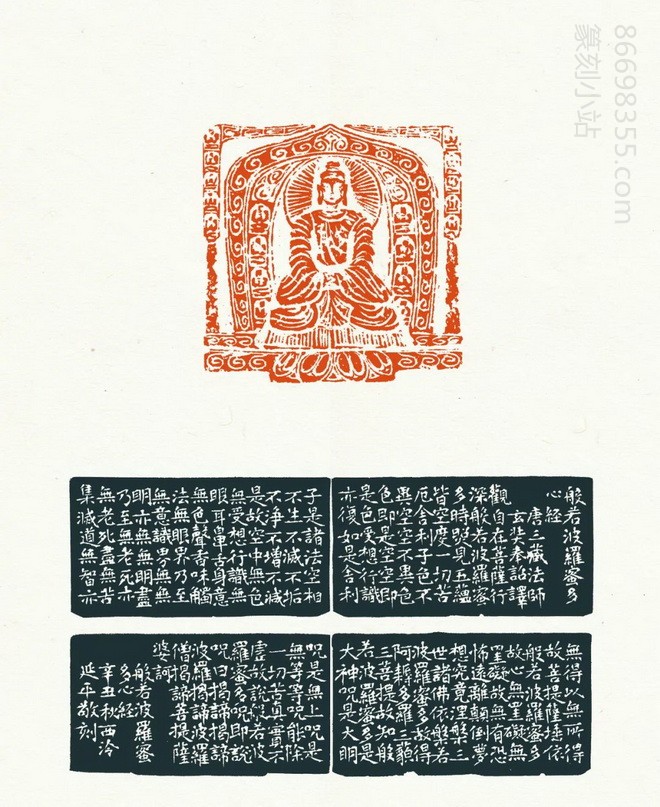 86698355.com
篆刻小站
般若波羅蜜多
心經
唐三藏法師
玄奘奉詔譯
觀自在菩薩行
深般若波羅蜜
多時照見五蘊
皆空度一切苦
厄舍利子色不
異空空不異色
色即是空空即
是色受想行識
亦復如是舍利
子是諸法空相
不生不滅不垢
不淨不增不減
是故空中無色
無受想行識無
眼耳鼻舌身意
無色聲香味觸
法無眼界乃至
無意識界無無
明亦無無明盡
乃至無老死亦
無老死盡無苦
集滅道無智亦
無得以無所得
故菩提薩埵依
般若波羅蜜多
故心無罣礙無
罣礙故無有恐
怖遠離顛倒夢
想究竟涅槃三
世諸佛依般若
波羅蜜多故得
阿耨多羅三藐
三菩提故知般
若波羅蜜多是
大神呪是大明
呪是無上呪是
無等等呪能除
一切苦真實不
虛故說般若波
羅蜜多呪即說
呪曰揭諦揭諦
波羅揭諦波羅
僧揭諦菩提薩
婆訶
般若波羅蜜
多心經
辛丑秋西泠
延平敬刻